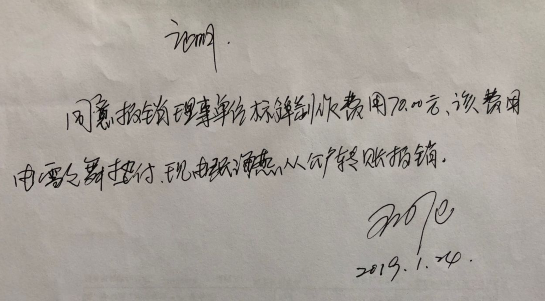 证明.
同意报销理事单位标牌制作费用70.00元、该费用
由雪之舞垫付.现由张海燕从公户转账报销.
2019.1.24.